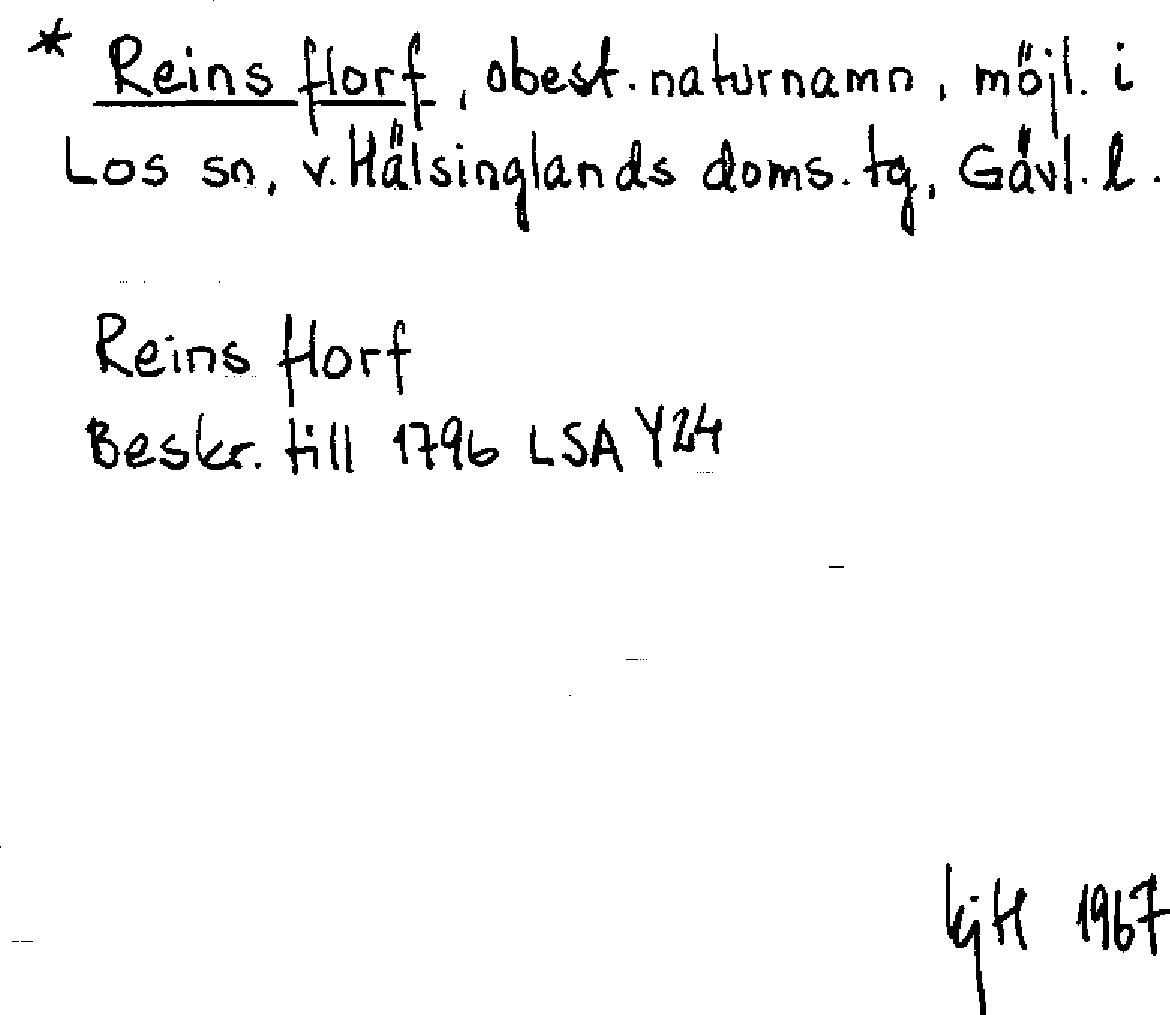 * Reins Horf, obest. naturnamn, möjl. i
Los sn, v. Hälsinglands doms. tg, Gävl. l.
Reins Horf
Beskr. till 1796 LSA Y24
kjH 1967